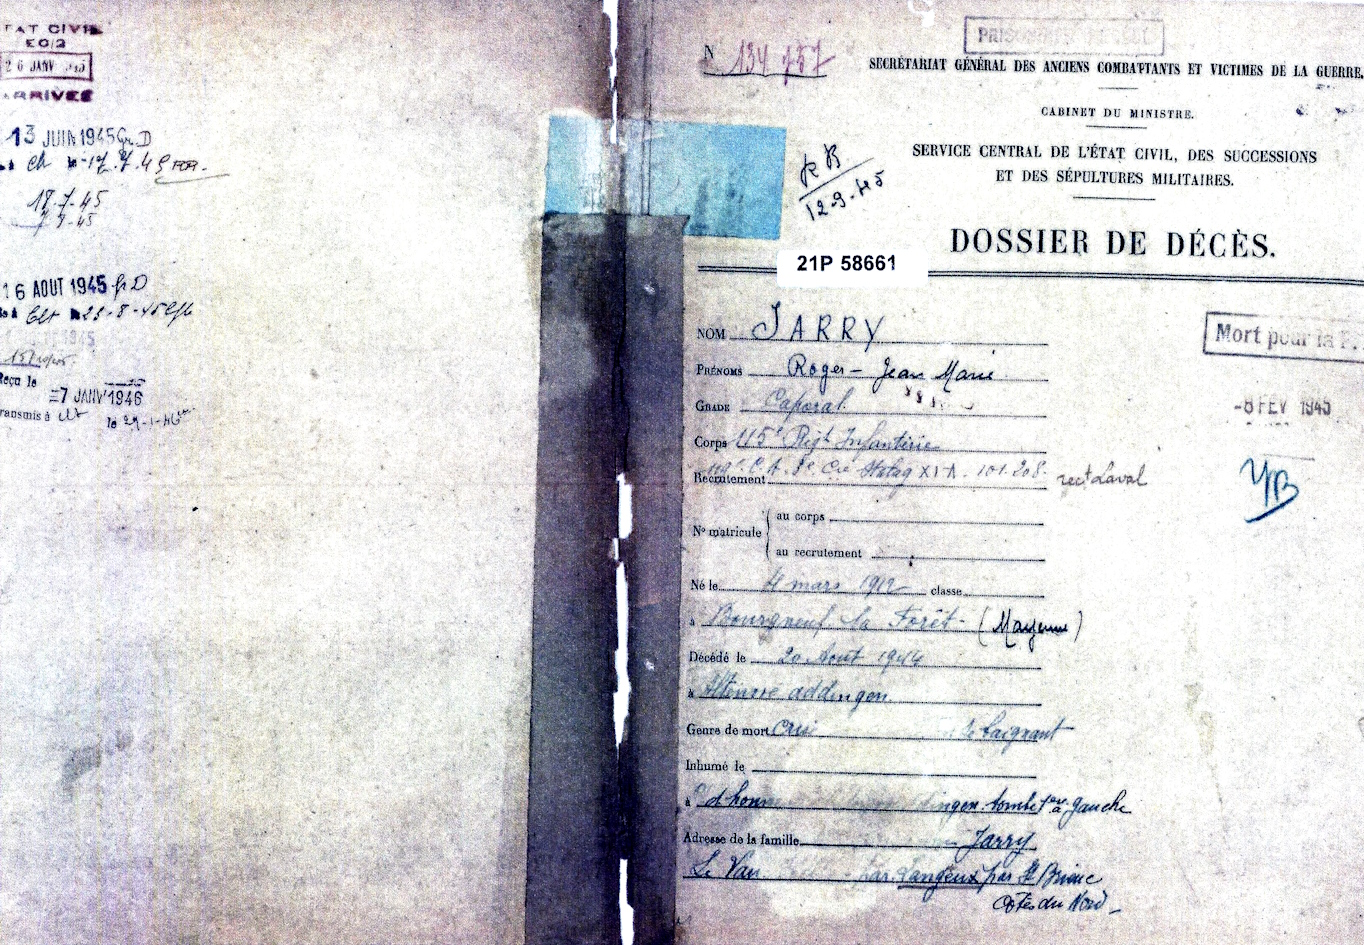 ETAT CIVIL
EC/2
26 JANV 1945
ARRIVÉE
13 JUIN 1945 Gr. D
17.7.45
18-7-45
7-9-45
16 AOUT 1945 Gr D
23-8-45
1945
Reçu le
=7 JANV 1946
Transmis à
le 29-1-46
N 134 757
SECRÉTARIAT GÉNÉRAL DES ANCIENS COMBATTANTS ET VICTIMES DE LA GUERRE.
CABINET DU MINISTRE.
SERVICE CENTRAL DE L'ÉTAT CIVIL, DES SUCCESSIONS
ET DES SÉPULTURES MILITAIRES.
12-9-45
DOSSIER DE DÉCÈS.
21P 58661
NOM JARRY
Mort pour la F.
PRÉNOMS Roger - Jean Marie
GRADE Caporal
-8 FEV 1945
Corps 115e Régt Infanterie
Recrutement Stalag XI A. 101.208. rect Laval
N° matricule
au corps
au recrutement
Né le 4 mars 1912 classe
à Bourgneuf la Forêt - (Mayenne)
Décédé le 20 Aout 1944
à addingen
Genre de mort
Inhumé le
à tombe 1er à gauche
Adresse de la famille Jarry
Le Van par Langueux par St Brieuc
Côtes du Nord